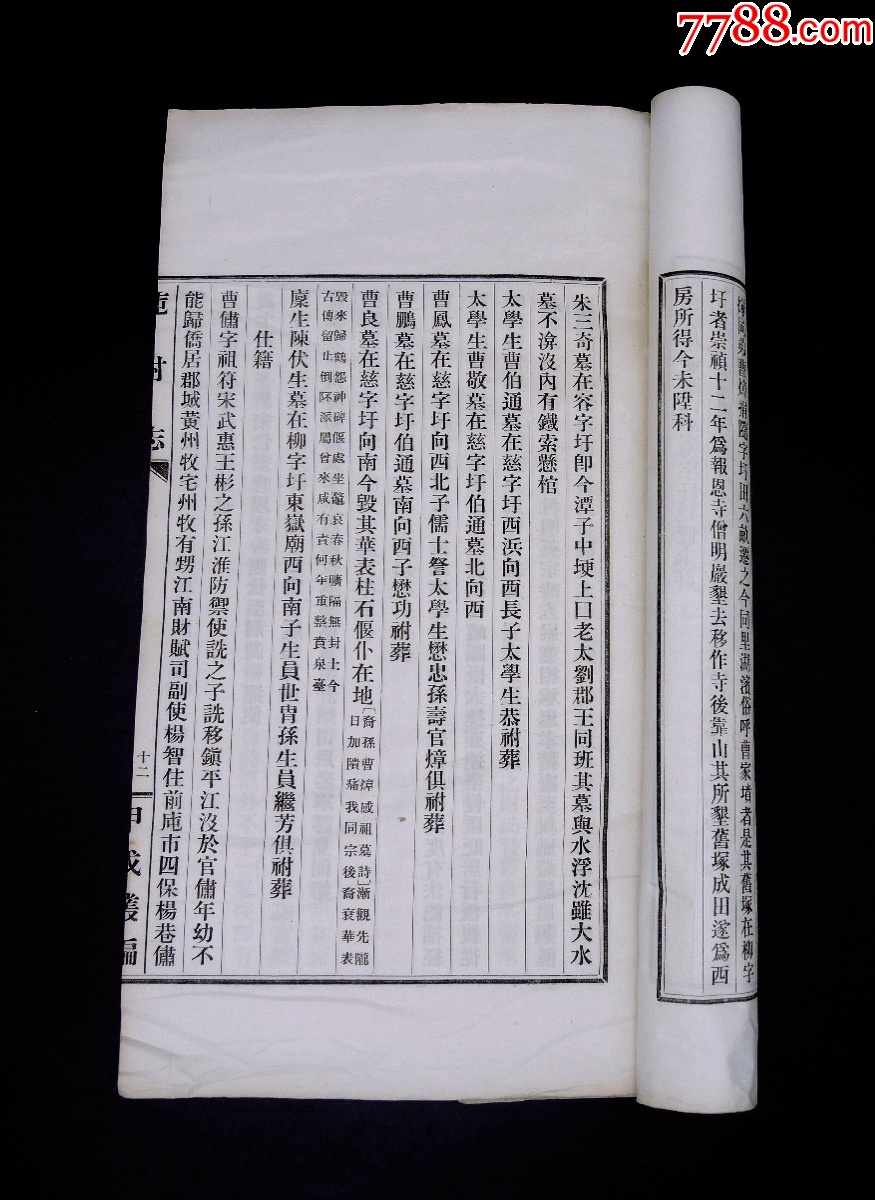 7788.com
圩者崇禎十二年爲報恩寺僧明巖墾去移作寺後靠山其所墾舊塚成田遂爲西
房所得今未陞科
朱三奇墓在容字圩卽今潭子中埂上口老太劉郡王同班其墓與水浮沈雖大水
墓不渰沒內有鐵索懸棺
太學生曹伯通墓在慈字圩西浜向西長子太學生恭祔葬
太學生曹敬墓在慈字圩伯通墓北向西
曹鳳墓在慈字圩向西北子儒士詧太學生懋忠孫壽官煒俱祔葬
曹鵬墓在慈字圩伯通墓南向西子懋功祔葬
曹良墓在慈字圩向南今毀其華表柱石偃仆在地
裔孫曹煒感祖墓詩漸觀先隴
日加隤痛我同宗後裔衰華表
毀來歸鶴怨神碑偃處坐鼇哀春秋曠隔無封土今
古傳留止倒阫派屬曾來咸有責何年重整賁泉臺
廩生陳伏生墓在柳字圩東嶽廟西向南子生員世胄孫生員繼芳俱祔葬
仕籍
曹鏽字祖符宋武惠王彬之孫江淮防禦使詵之子詵移鎭平江沒於官鏽年幼不
能歸僑居郡城黃州牧宅州牧有甥江南財賦司副使楊智住前庉市四保楊巷鏽
志
十二
甲戌叢編